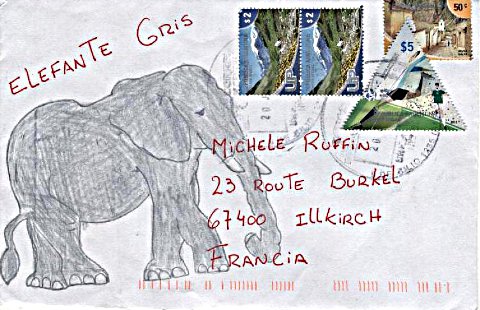 ELEFANTE GRIS
$2
$2
50c
$5
UP
UP
MICHELE RUFFIN
23 ROUTE BURKEL
67400 ILLKIRCH
FRANCIA